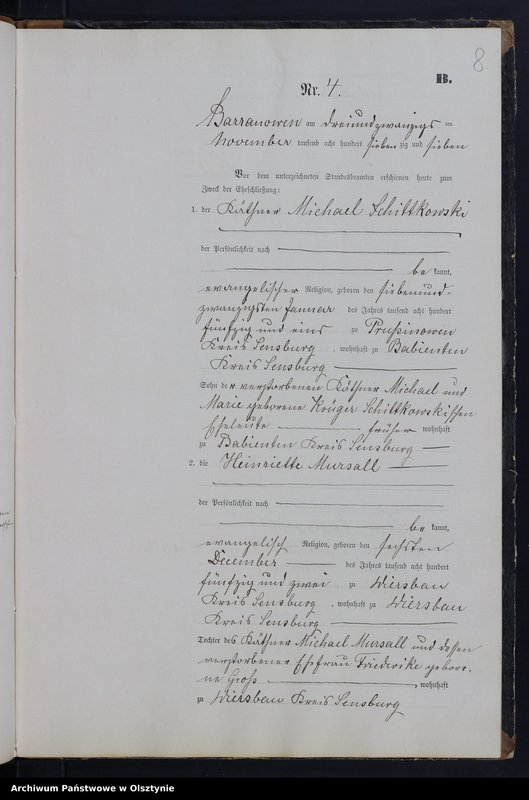 8
B.
Nr. 4.
Barranowen am dreiundzwanzigs ten
November tausend acht hundert sieben zig und sieben
Vor dem unterzeichneten Standesbeamten erschienen heute zum
Zweck der Eheschließung:
1. der Käthner Michael Schittkowski
der Persönlichkeit nach
be kannt,
evangelischer Religion, geboren den siebenund-
zwanzigsten Januar des Jahres tausend acht hundert
fünfzig und eins zu Prußinowen
Kreis Sensburg, wohnhaft zu Babienten
Kreis Sensburg
Sohn der verstorbenen Käthner Michael und
Marie geborene Krüger Schittkowskischen
Eheleute früher wohnhaft
zu Babienten Kreis Sensburg
2. die Heinriette Mursall
der Persönlichkeit nach
be kannt,
evangelisch Religion, geboren den sechsten
December des Jahres tausend acht hundert
fünfzig und zwei zu Wiersbau
Kreis Sensburg, wohnhaft zu Wiersbau
Kreis Sensburg
Tochter des Käthner Michael Mursall und dessen
verstorbener Ehefrau Friederike gebore-
ne Groß wohnhaft
zu Wiersbau Kreis Sensburg
Archiwum Państwowe w Olsztynie